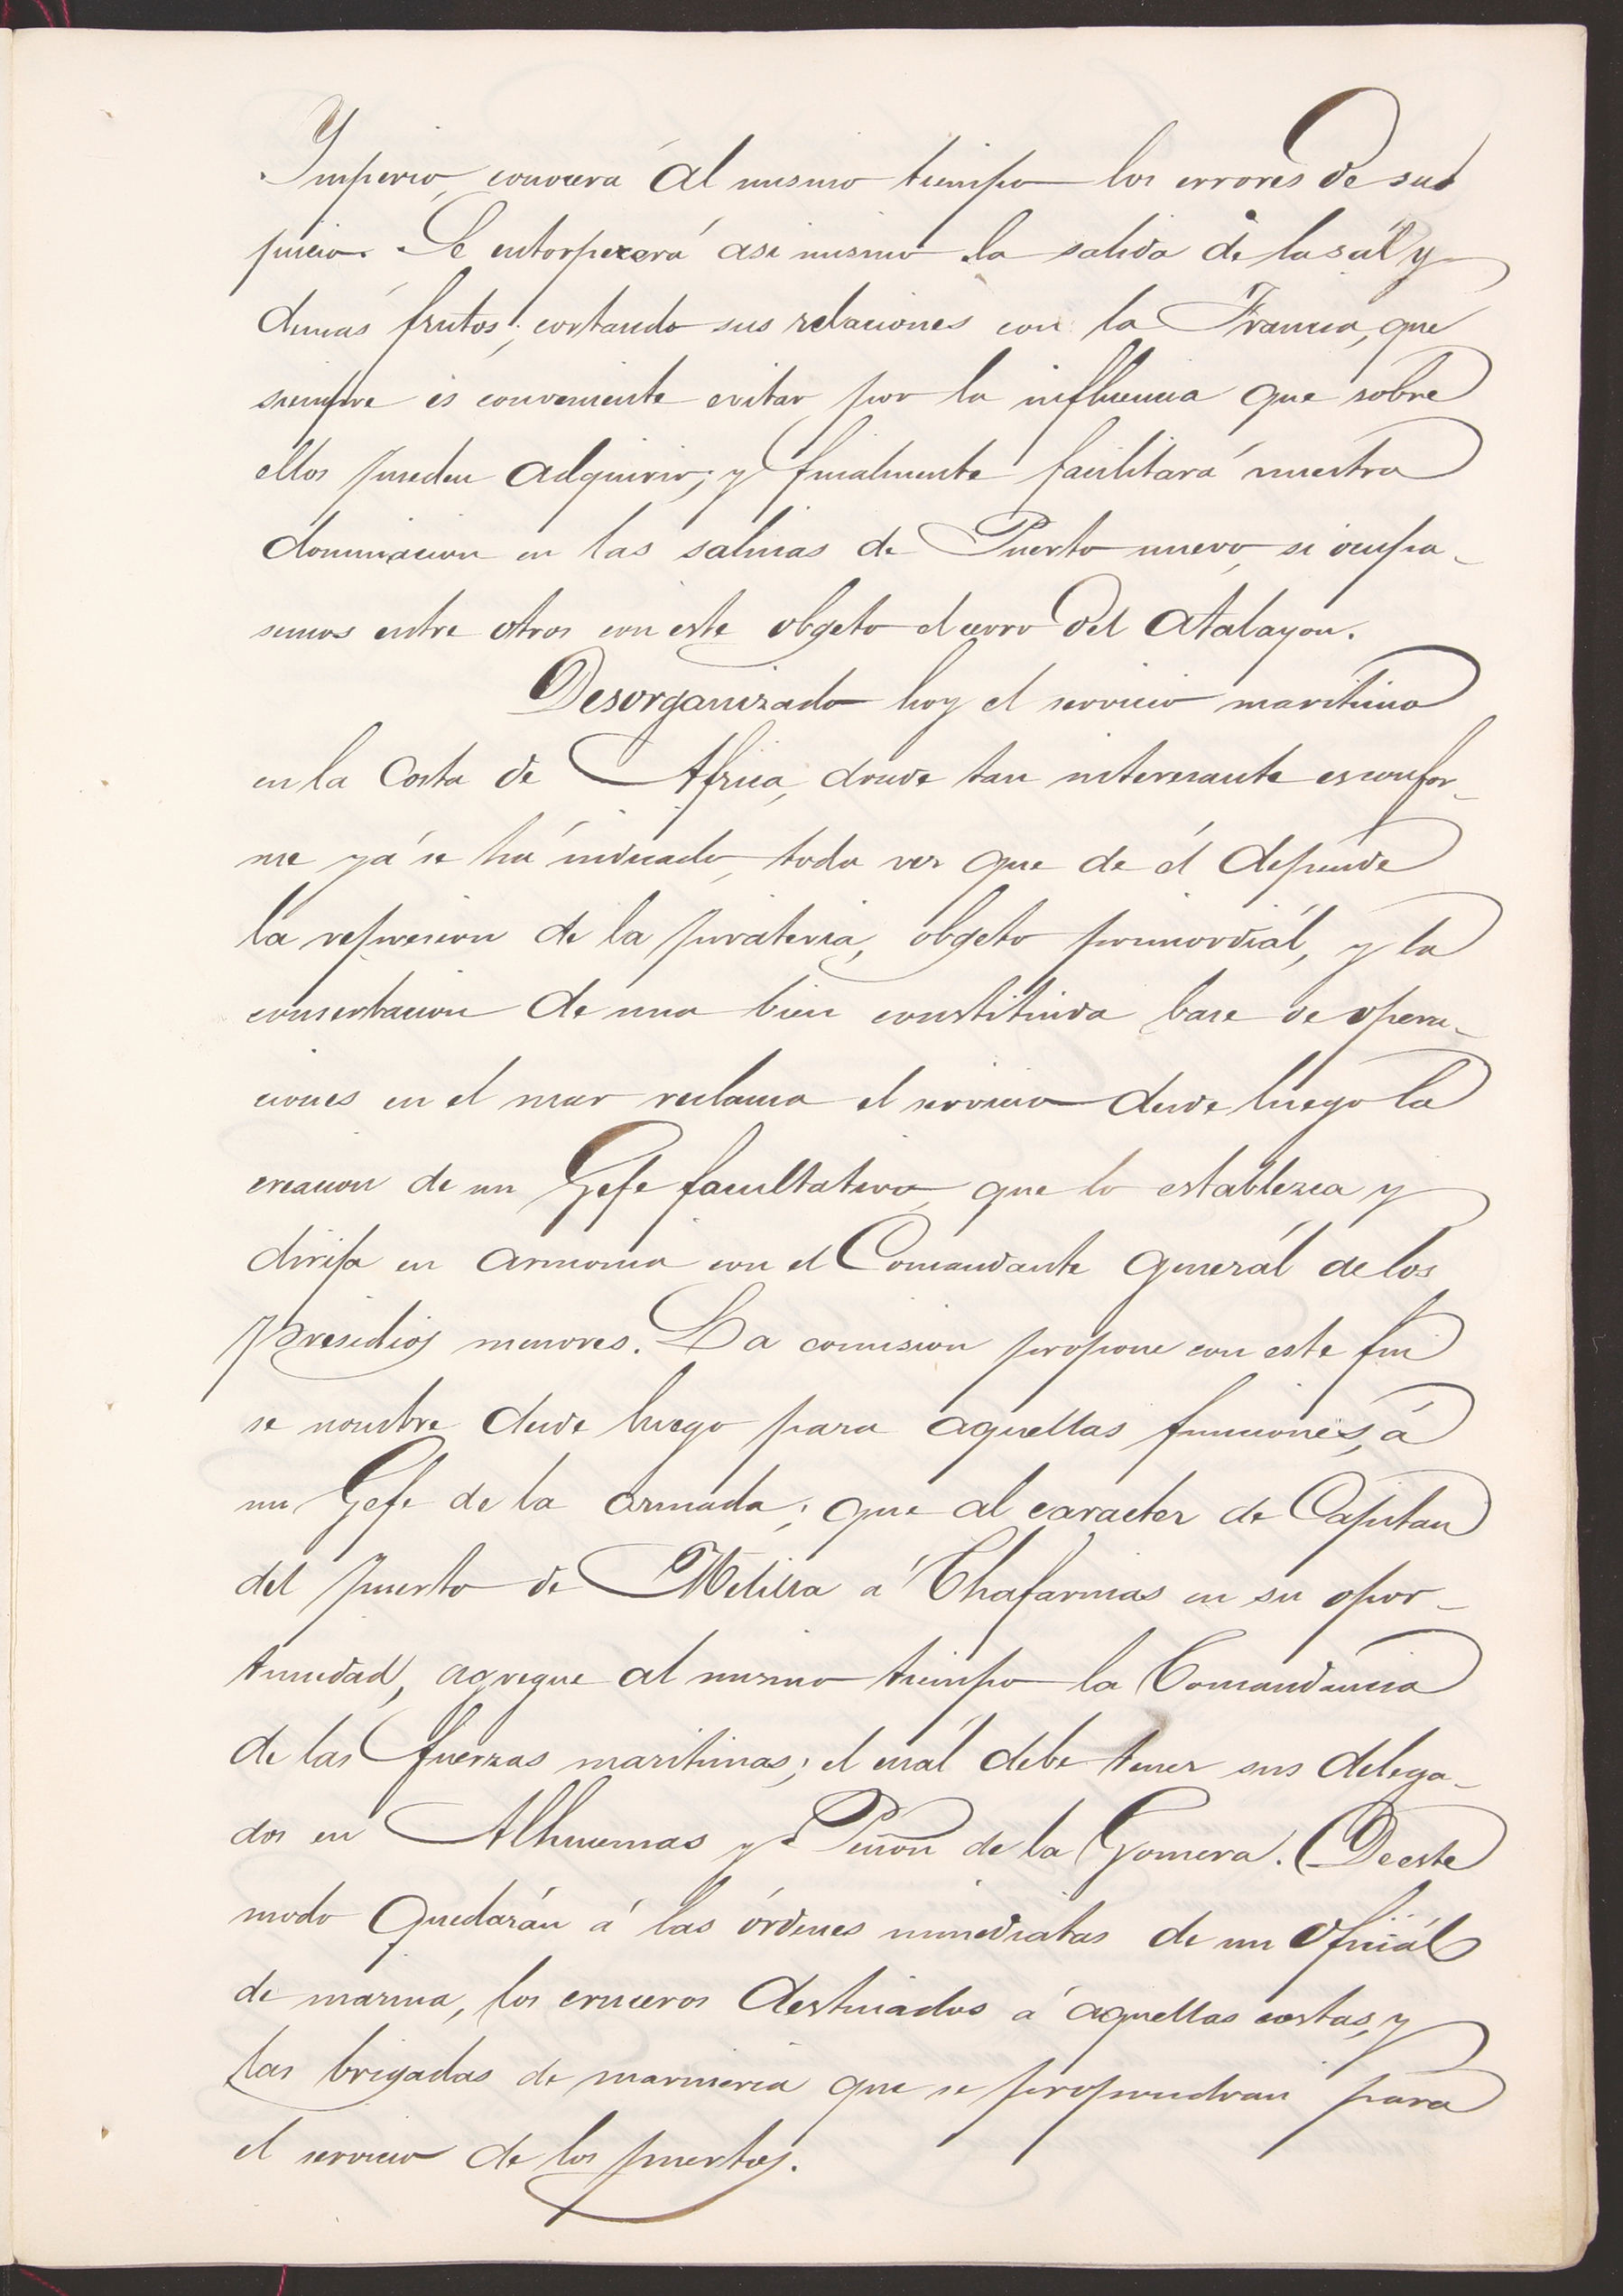 Ymperio, conocerá al mismo tiempo los errores de su
juicio. Se entorpecerá asi mismo la salida de la sál y
demás frutos; cortando sus relaciones con la Francia, que
siempre es conveniente evitar por la influencia que sobre
ellos pueden adquirir; y finalmente facilitará nuestra
dominacion en las salinas de Puerto nuevo, si ocupa-
semos entre otros con este obgeto el cerro del Atalayon.
Desorganizado hoy el servicio maritimo
en la Costa de Africa, donde tan interesante es confor-
me yá se há indicado, toda vez que de él depende
la represion de la pirateria, obgeto primordiál, y la
conserbacion de una bien constituida base de opera-
ciones en el mar reclama el servicio desde luego la
creacion de un Gefe facultativo, que lo establezca y
dirija en armonia con el Comandante generál de los
Presidios menores. La comision propone con este fin
se nombre desde luego para aquellas funciones, á
un Gefe de la armada; que al caracter de Capitan
del puerto de Melilla a Chafarinas en su opor-
tunidad, agregue al mismo tiempo la Comandancia
de las fuerzas maritimas; el cuál debe tener sus delega-
dos en Alhucemas y Peñon de la Gomera. De este
modo quedarán á las órdenes inmediatas de un oficiál
de marina, los cruceros destinados á aquellas costas, y
las brigadas de marineria que se propondran para
el servicio de los puertos.